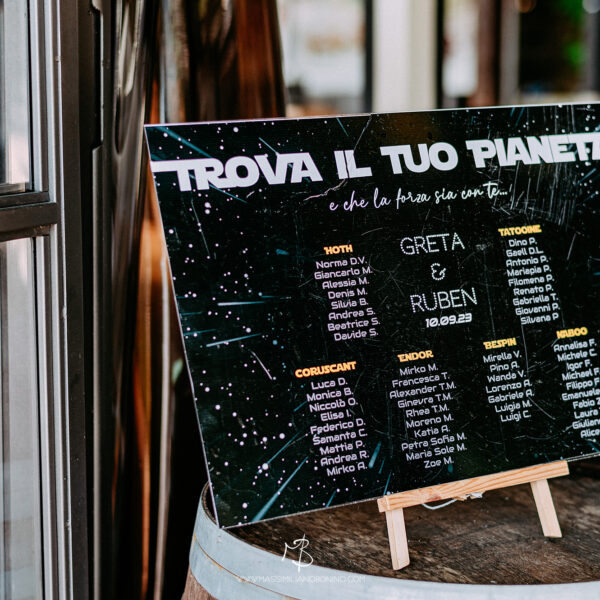 TROVA IL TUO PIANET
e che la forza sia con te...
GRETA
&
RUBEN
10.09.23
HOTH
Norma D.V.
Giancarlo M.
Alessia M.
Denis M.
Silvia B.
Andrea S.
Beatrice S.
Davide S.
TATOOINE
Dino P.
Gaell D.L.
Antonio P.
Mariapia P.
Filomena P.
Renato P.
Gabriella T.
Giovanni P.
Silvana P.
CORUSCANT
Luca D.
Monica B.
Niccolò D.
Elisa I.
Federico D.
Samanta C.
Mattia P.
Andrea R.
Mirko A.
ENDOR
Mirko M.
Francesca T.
Alexander T.M.
Ginevra T.M.
Rhea T.M.
Moreno M.
Katia A.
Petra Sofia M.
Maria Sole M.
Zoe M.
BESPIN
Mirella V.
Pino A.
Wanda V.
Lorenzo A.
Gabriele A.
Luigia M.
Luigi C.
NABOO
Annalisa F.
Michele C.
Igor F.
Michael F.
Filippo F
Emanuele
Fabio
Laura
Giuliano
Alice
WWW.MASSIMILIANOBONINO.COM